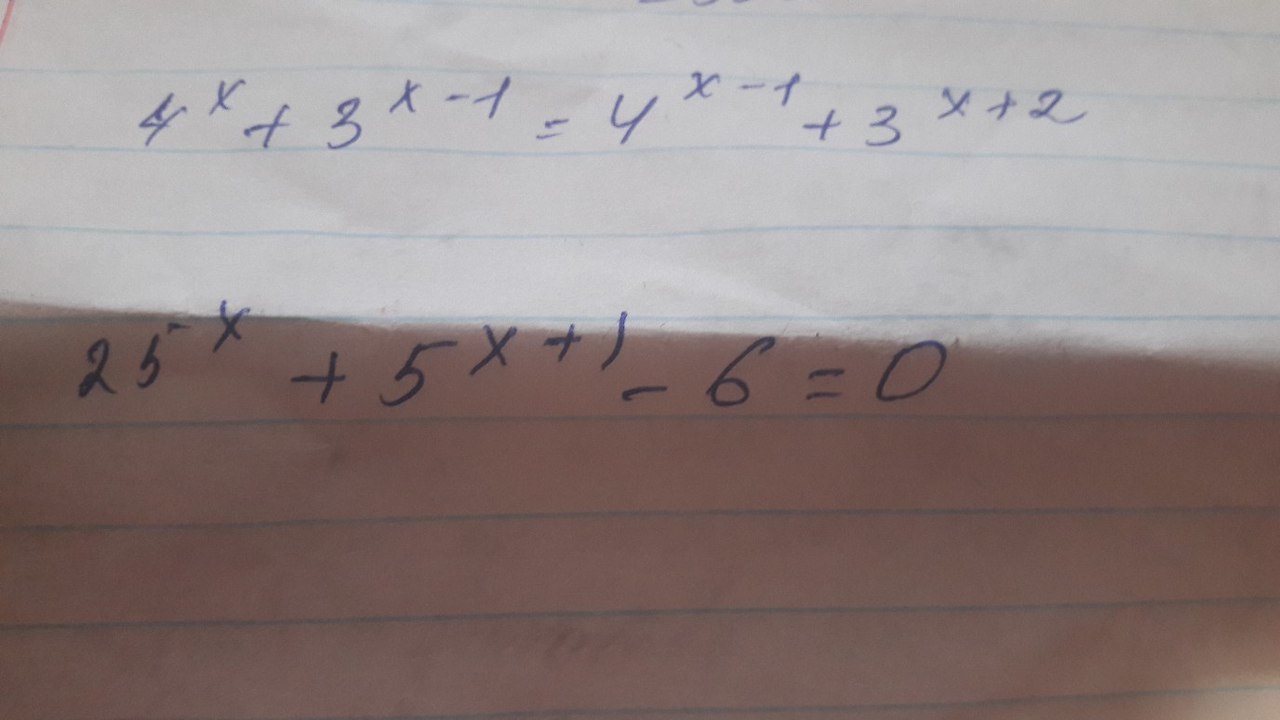 4^x + 3^(x-1) = 4^(x-1) + 3^(x+2)
25^x + 5^(x+1) - 6 = 0